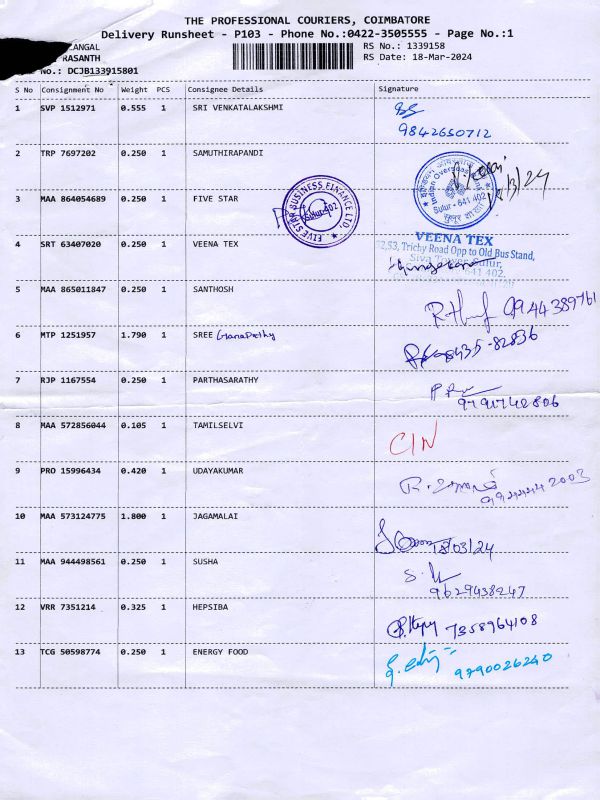 THE PROFESSIONAL COURIERS, COIMBATORE
Delivery Runsheet - P103 - Phone No.:0422-3505555 - Page No.:1
RS No.: 1339158
RASANTH RS Date: 18-Mar-2024
No.: DCJB133915801
S No Consignment No Weight PCS Consignee Details Signature
1 SVP 1512971 0.555 1 SRI VENKATALAKSHMI
9842650712
2 TRP 7697202 0.250 1 SAMUTHIRAPANDI
Indian Overseas Bank
Sulur - 641 402
3 MAA 864054689 0.250 1 FIVE STAR
FIVE STAR BUSINESS FINANCE LTD.
Sulur-402
4 SRT 63407020 0.250 1 VEENA TEX
VEENA TEX
Trichy Road Opp to Old Bus Stand,
Siva Tower, Sulur,
641 402.
5 MAA 865011847 0.250 1 SANTHOSH
6 MTP 1251957 1.790 1 SREE GanaPathy
7 RJP 1167554 0.250 1 PARTHASARATHY
9791742806
8 MAA 572856044 0.105 1 TAMILSELVI
CIN
9 PRO 15996434 0.420 1 UDAYAKUMAR
10 MAA 573124775 1.800 1 JAGAMALAI
18/03/24
11 MAA 944498561 0.250 1 SUSHA
9629438247
12 VRR 7351214 0.325 1 HEPSIBA
7358964108
13 TCG 50598774 0.250 1 ENERGY FOOD
9790026240